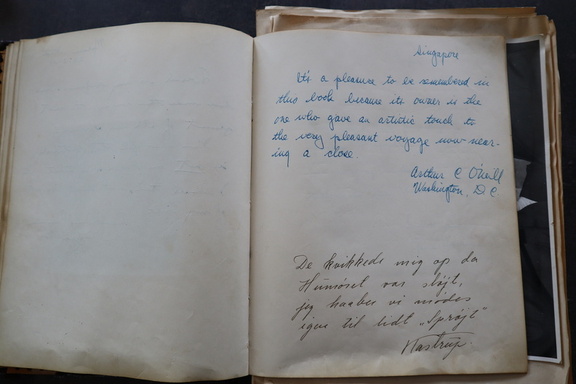 Singapore
It's a pleasure to be remembered in
this book because its owner is the
one who gave an artistic touch to
the very pleasant voyage now near-
ing a close.
Arthur C O'Neill
Washington, D.C.
De kvikkede mig op da
Humöret var sløjt,
jeg haaber vi mødes
igen til lidt „Sprøjt"
Kastrup.